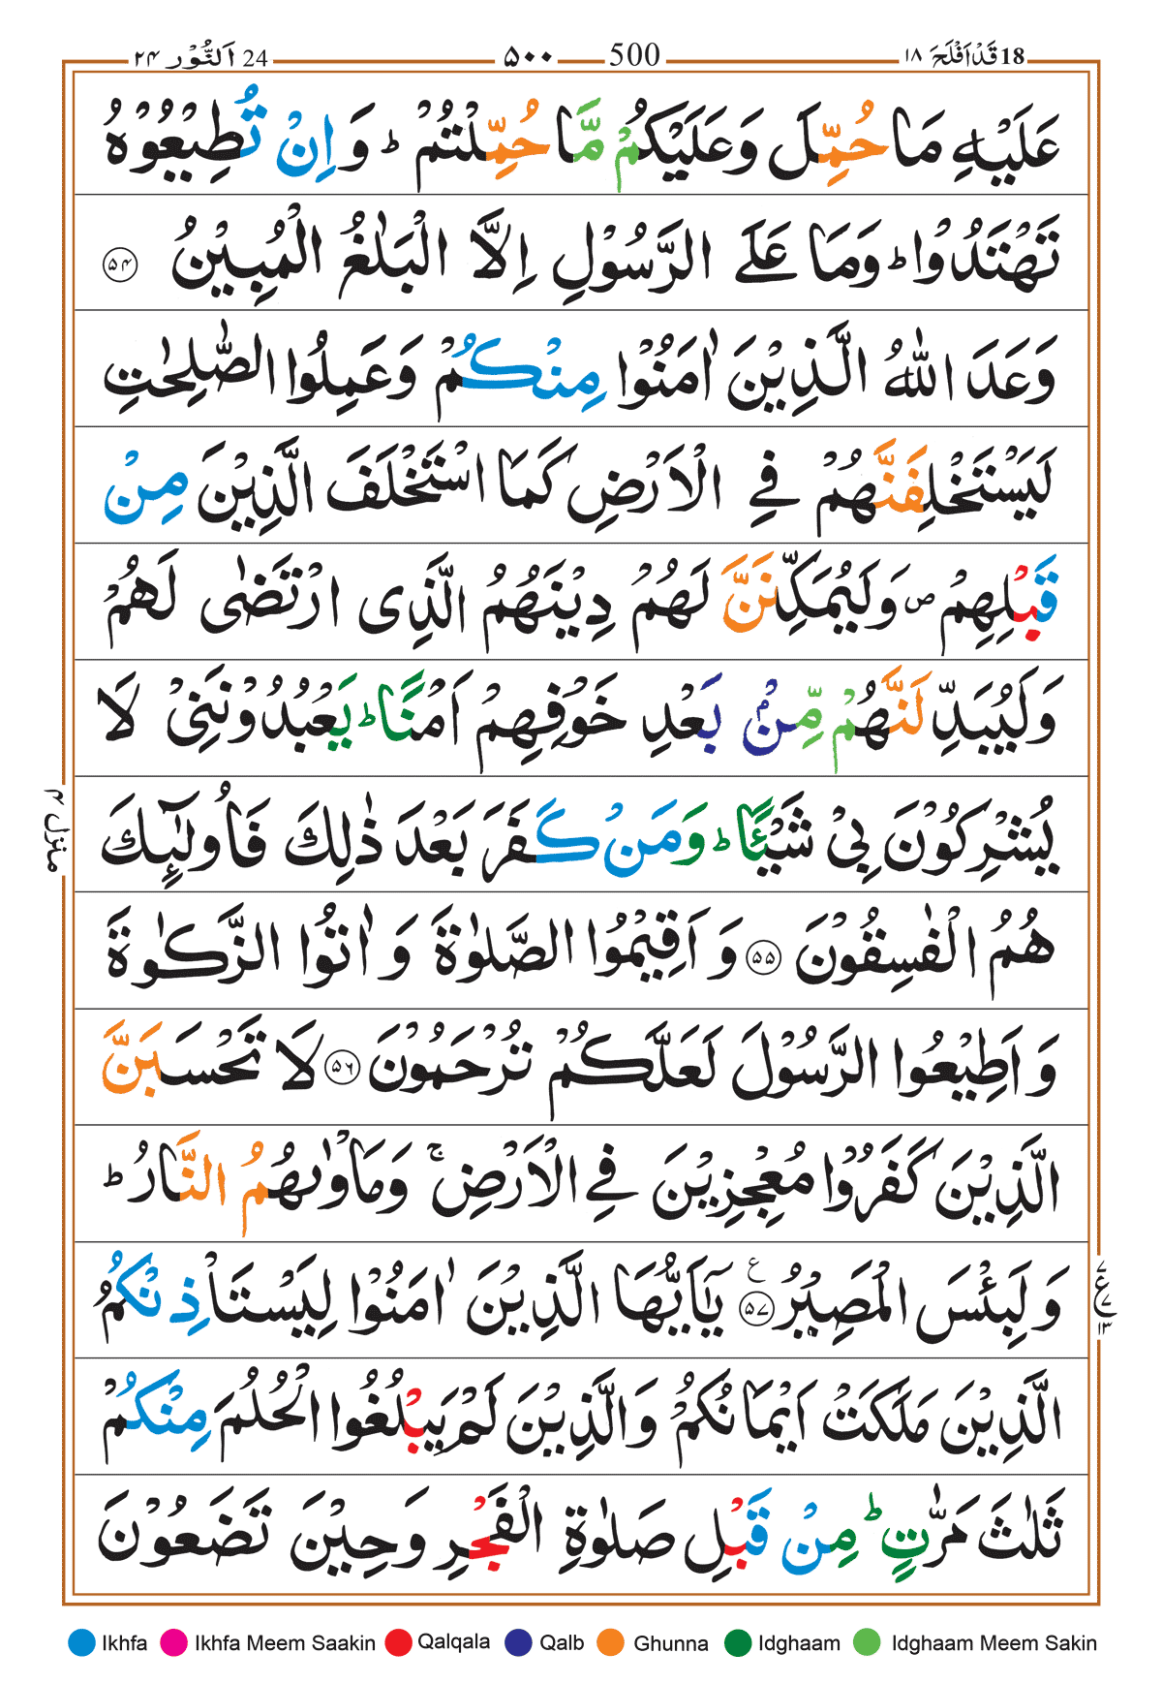 18 قَدْ اَفْلَحَ ١٨ 500 ۵۰۰ 24 اَلنُّوْر ۲۴
عَلَيْهِ مَا حُمِّلَ وَعَلَيْكُمْ مَّا حُمِّلْتُمْ ؕ وَاِنْ تُطِيْعُوْهُ
تَهْتَدُوْا ؕ وَمَا عَلَى الرَّسُوْلِ اِلَّا الْبَلٰغُ الْمُبِيْنُ ۵۴
وَعَدَ اللّٰهُ الَّذِيْنَ اٰمَنُوْا مِنْكُمْ وَعَمِلُوا الصّٰلِحٰتِ
لَيَسْتَخْلِفَنَّهُمْ فِي الْاَرْضِ كَمَا اسْتَخْلَفَ الَّذِيْنَ مِنْ
قَبْلِهِمْ ۪ وَلَيُمَكِّنَنَّ لَهُمْ دِيْنَهُمُ الَّذِى ارْتَضٰى لَهُمْ
وَلَيُبَدِّلَنَّهُمْ مِّنْۢ بَعْدِ خَوْفِهِمْ اَمْنًا ؕ يَعْبُدُوْنَنِيْ لَا
يُشْرِكُوْنَ بِيْ شَيْـًٔا ؕ وَمَنْ كَفَرَ بَعْدَ ذٰلِكَ فَاُولٰٓئِكَ
هُمُ الْفٰسِقُوْنَ ۵۵ وَاَقِيْمُوا الصَّلٰوةَ وَاٰتُوا الزَّكٰوةَ
وَاَطِيْعُوا الرَّسُوْلَ لَعَلَّكُمْ تُرْحَمُوْنَ ۵۶ لَا تَحْسَبَنَّ
الَّذِيْنَ كَفَرُوْا مُعْجِزِيْنَ فِي الْاَرْضِ ۚ وَمَاْوٰىهُمُ النَّارُ ؕ
وَلَبِئْسَ الْمَصِيْرُ ۵۷ ع يٰۤاَيُّهَا الَّذِيْنَ اٰمَنُوْا لِيَسْتَاْذِنْكُمُ
الَّذِيْنَ مَلَكَتْ اَيْمَانُكُمْ وَالَّذِيْنَ لَمْ يَبْلُغُوا الْحُلُمَ مِنْكُمْ
ثَلٰثَ مَرّٰتٍ ؕ مِنْ قَبْلِ صَلٰوةِ الْفَجْرِ وَحِيْنَ تَضَعُوْنَ
منزل ۴
۷ ع ۷ ۱۳
Ikhfa Ikhfa Meem Saakin Qalqala Qalb Ghunna Idghaam Idghaam Meem Sakin